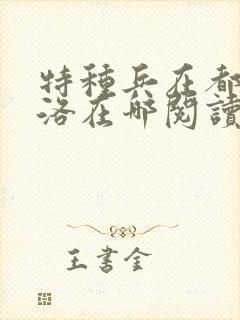 特種兵在都
洛在哪閱讀
王書金